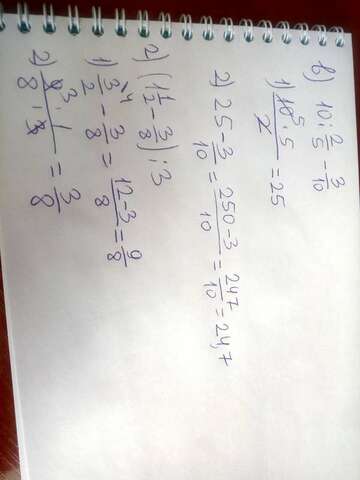 в) 10 : 2/5 - 3/10
1) 10⁵ · 5 / 2 = 25
2) 25 - 3/10 = 250 - 3 / 10 = 247/10 = 24,7
г) (1 1/2 - 3/8) : 3
1) 3/2 \4 - 3/8 = 12 - 3 / 8 = 9/8
2) 9³ · 1 / 8 · 3 = 3/8